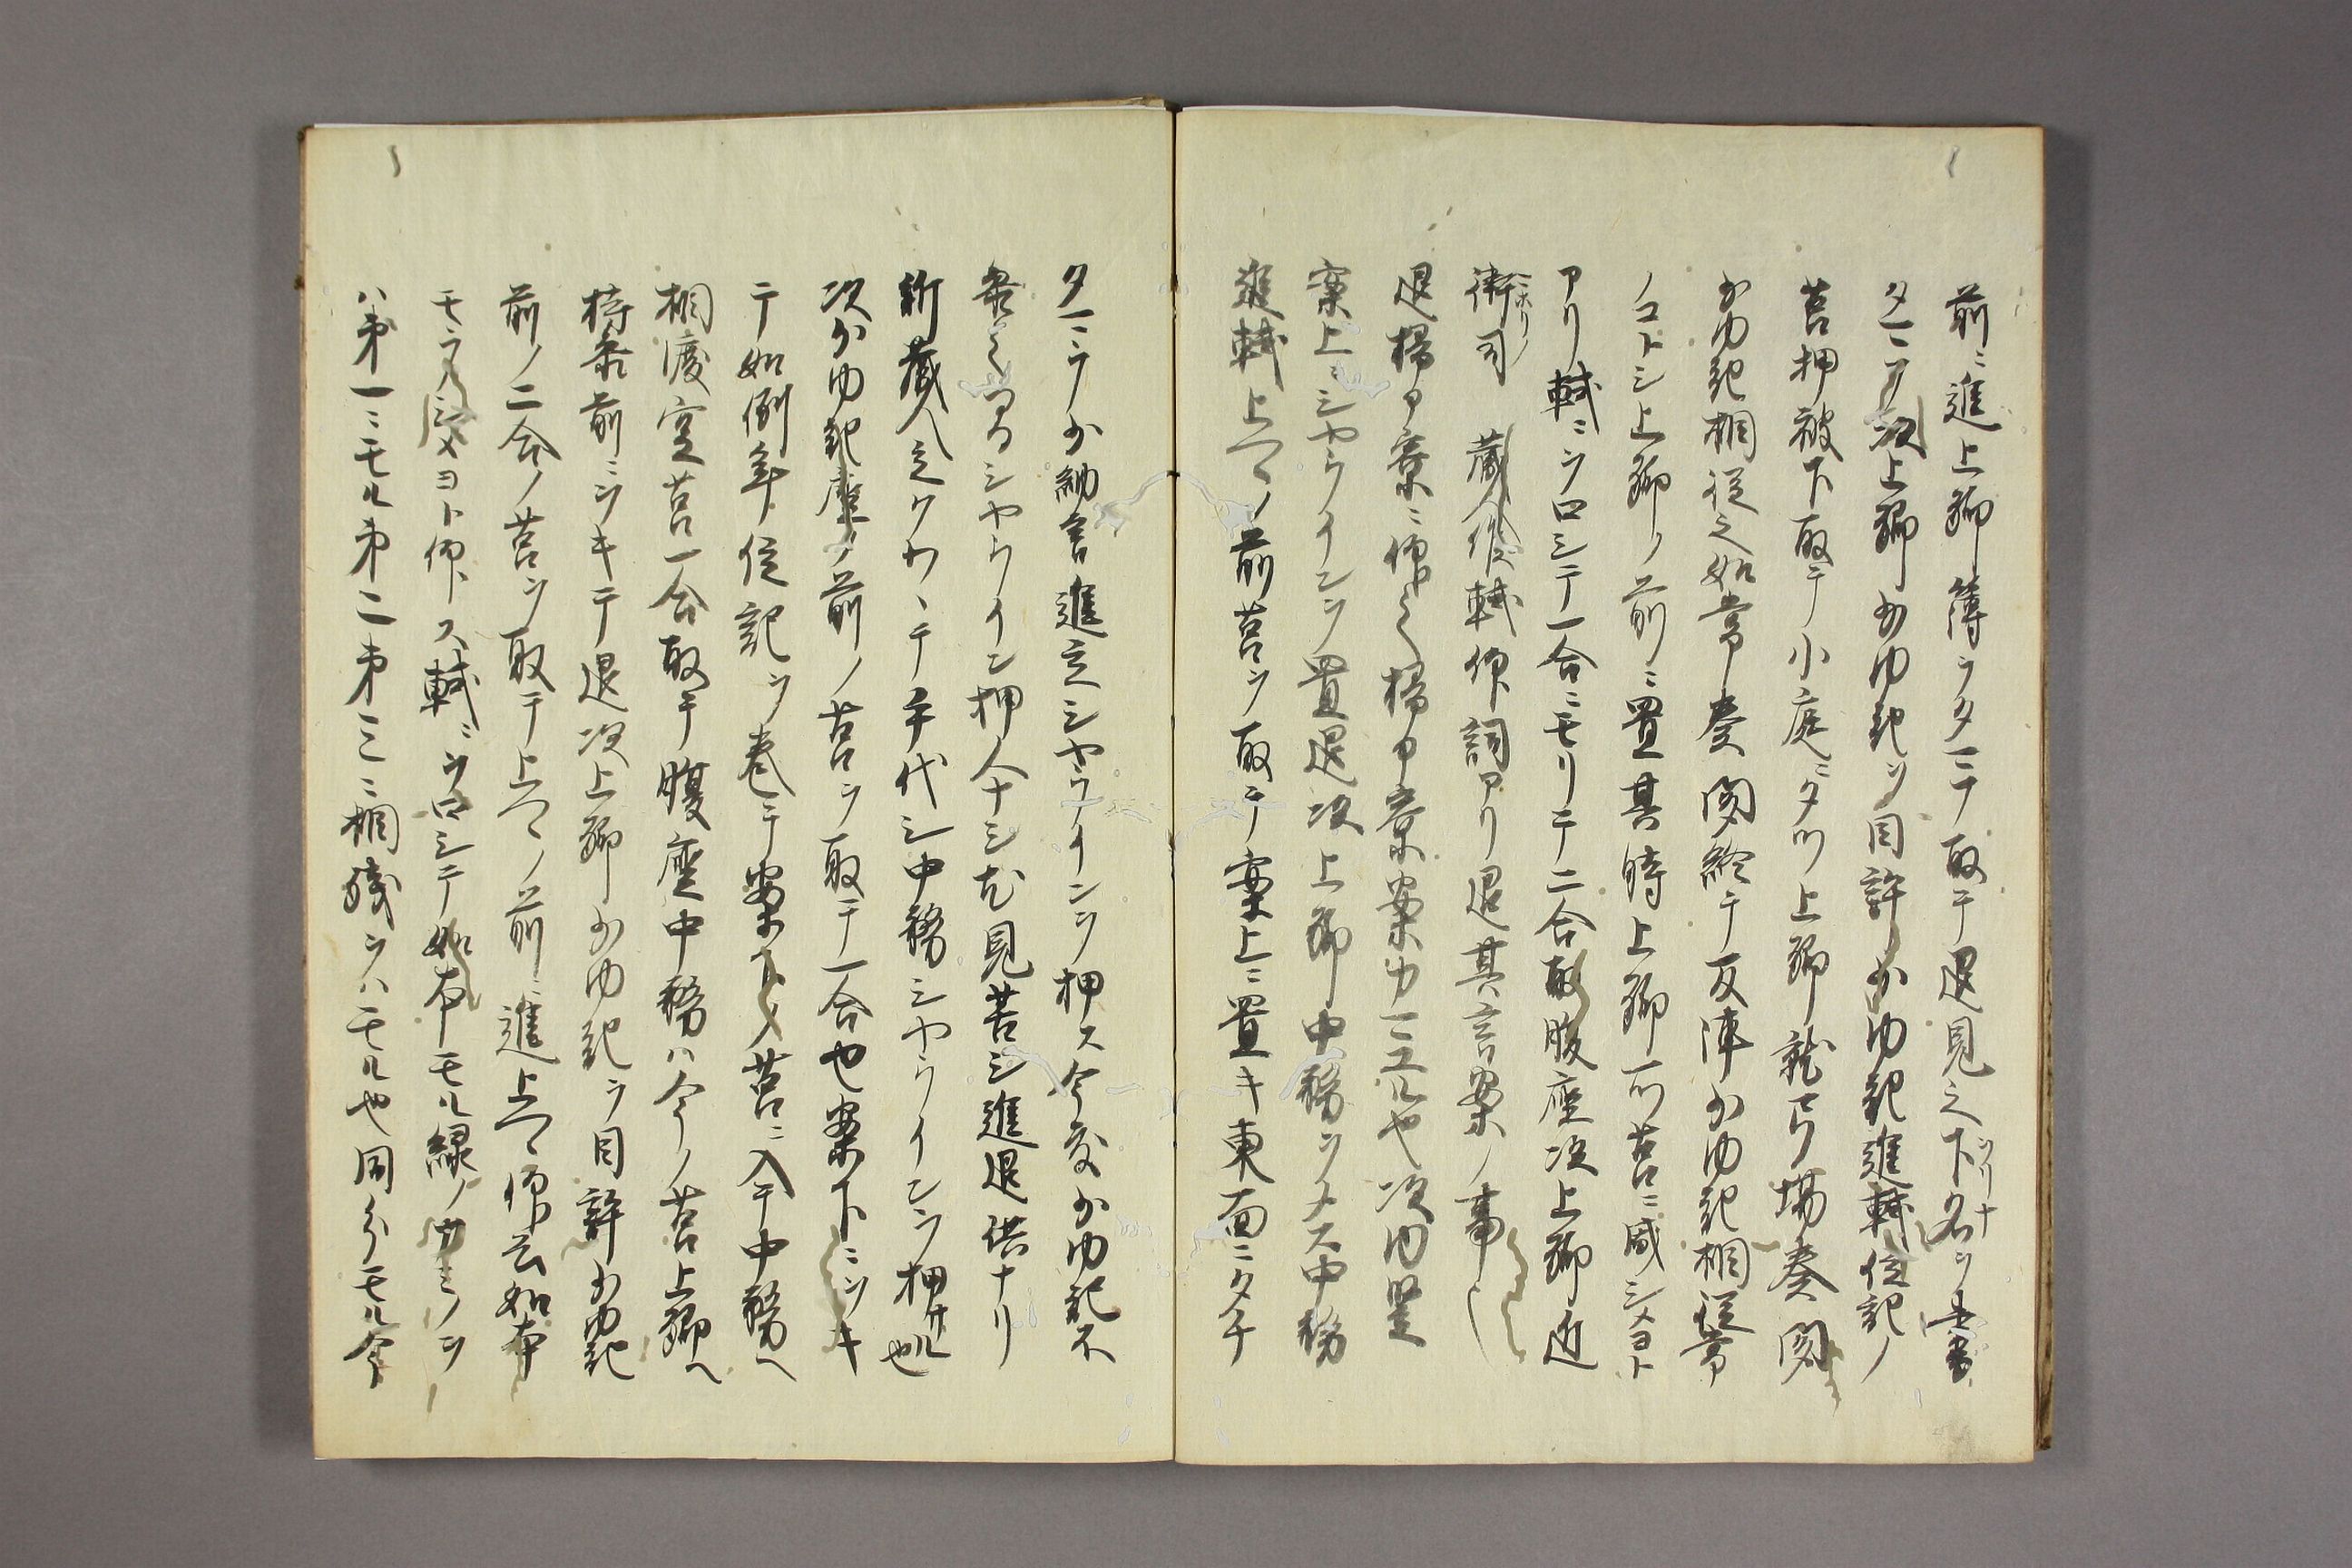 前ニ進上卿簿ヲタニテ取テ退見之下名ヲ
ツリナ
タニテ次上卿少内記ヲ目許少内記進軾位記ノ
莒押被下取テ小庭ニタツ上卿就弓場奏聞
少内記相従之如常奏聞終テ反陣少内記相従常
ノコトシ上卿ノ前ニ置其時上卿一ノ莒ニ盛シメヨト
アリ軾ニツロシテ一合ニモリテ二合取腹座次上卿近
衛司 蔵人後軾仰詞アリ退其言案ノ事
退掃ア寮ニ仰之掃ア寮案カエルや次内竪
案上ニシヤウインヲ置退次上卿中務ヲメス中務
進軾上マノ前莒ヲ取テ案上ニ置キ東面ニタチ
タニテ少納言進立シヤウインヲ押ス今度少内記不
参之間シヤウイン押人ナシ尤見苦シ進退供ナリ
新蔵人立ワカヽテ手代シ中務シヤウインヲ押サル也
次少内記座ノ前ノ莒ヲ取テ一合也案下ニツキ
テ如例年位記ヲ巻テ案下メ莒ニ入テ中務ヘ
相渡空莒一合取テ腹座中務ハ今ノ莒上卿ヘ
持参前ニツキテ退次上卿少内記ヲ目許少内記
前ノ二合ノ莒ヲ取テ上マノ前ニ進上マ仰云如本
モラシメヨト仰ス軾ニヲロシテ如本モル緑ノカミノヲ
ハ第一ニモル第二第三ニ相残ヲハモル也同分モル今